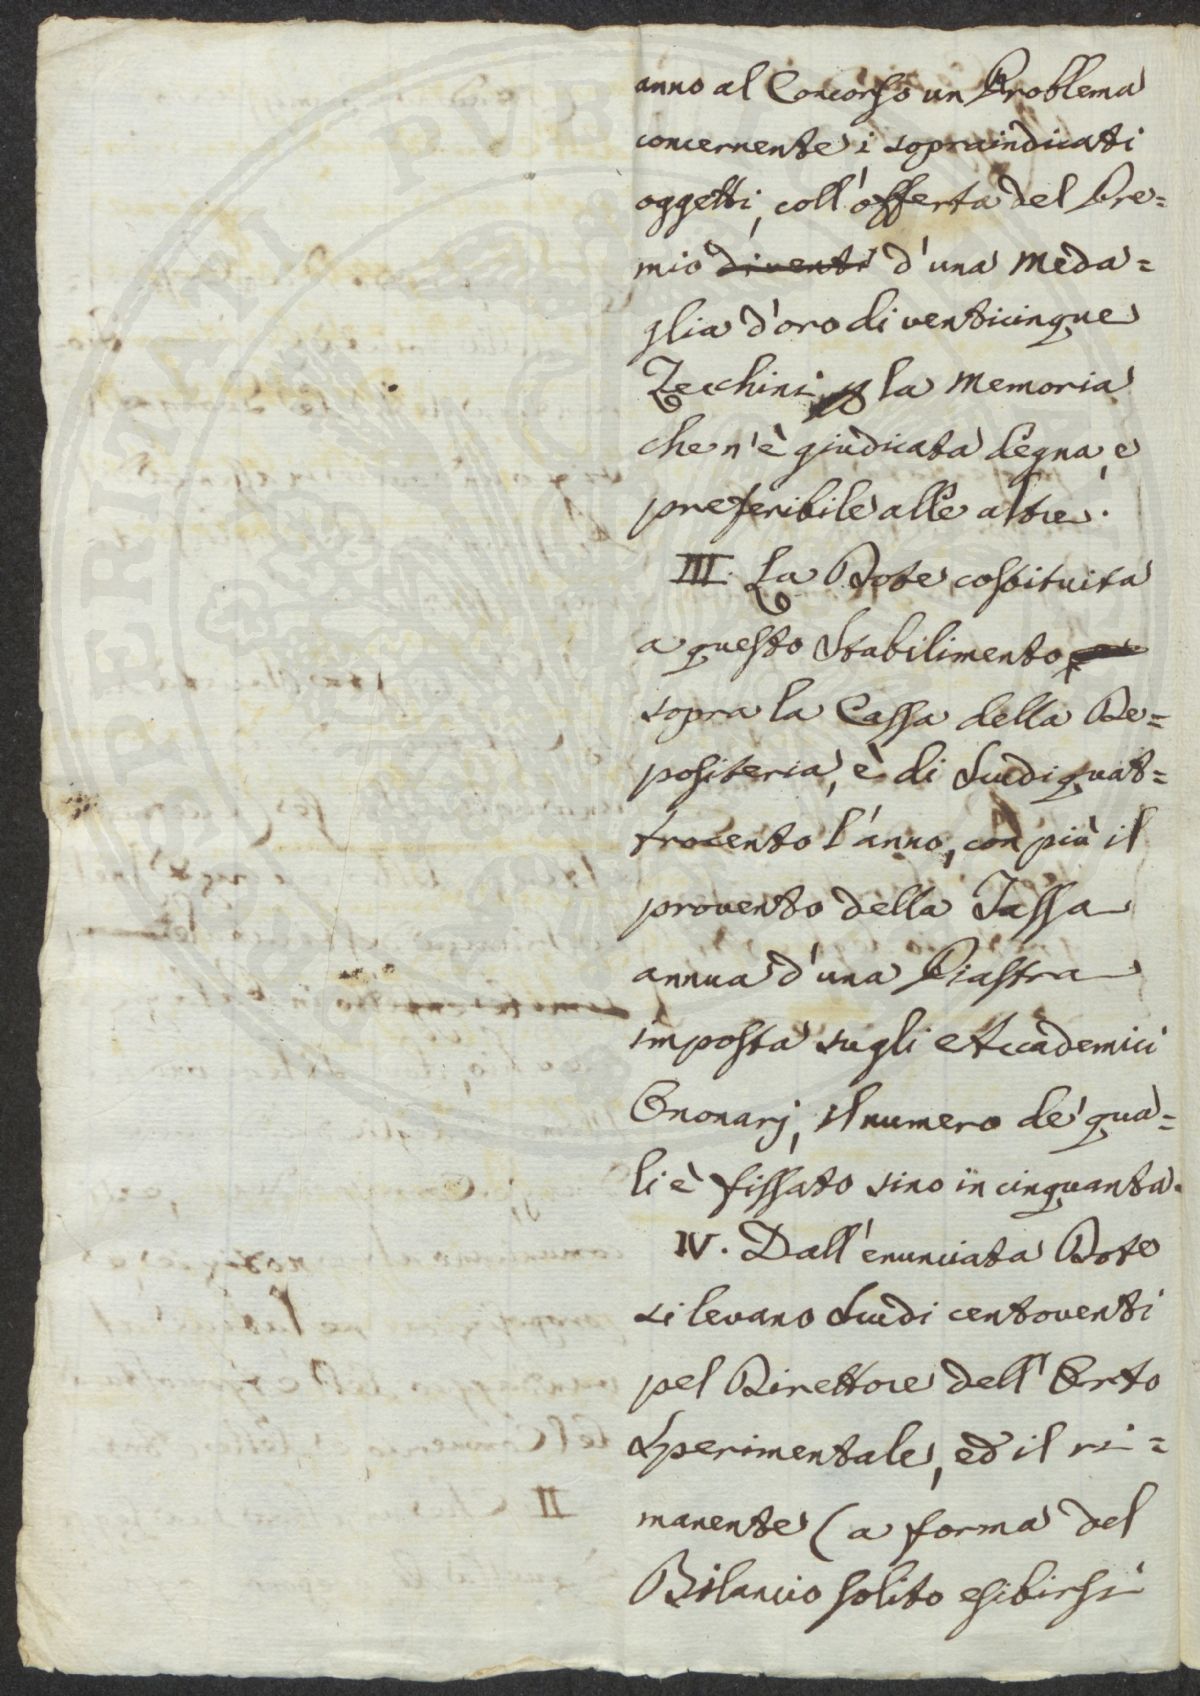 anno al Concorso un Problema
concernente i sopraindicati
oggetti, coll'offerta del Pre=
mio di venti d'una Meda=
glia d'oro di venticinque
Zecchini p la Memoria
che n'è giudicata degna, e
preferibile alle altre.
III. La Dote costituita
a questo Stabilimento
sopra la Cassa della De=
positeria, è di Scudi quat=
trocento l'anno, con più il
provento della Tassa
annua d'una Piastra
imposta sugli Accademici
Onorarj, il numero de' qua=
li è fissato sino in cinquanta.
IV. Dall'enunciata Dote
si levano Scudi centoventi
pel Direttore dell'Orto
Sperimentale, ed il ri=
manente (a forma del
Bilancio solito esibirsi